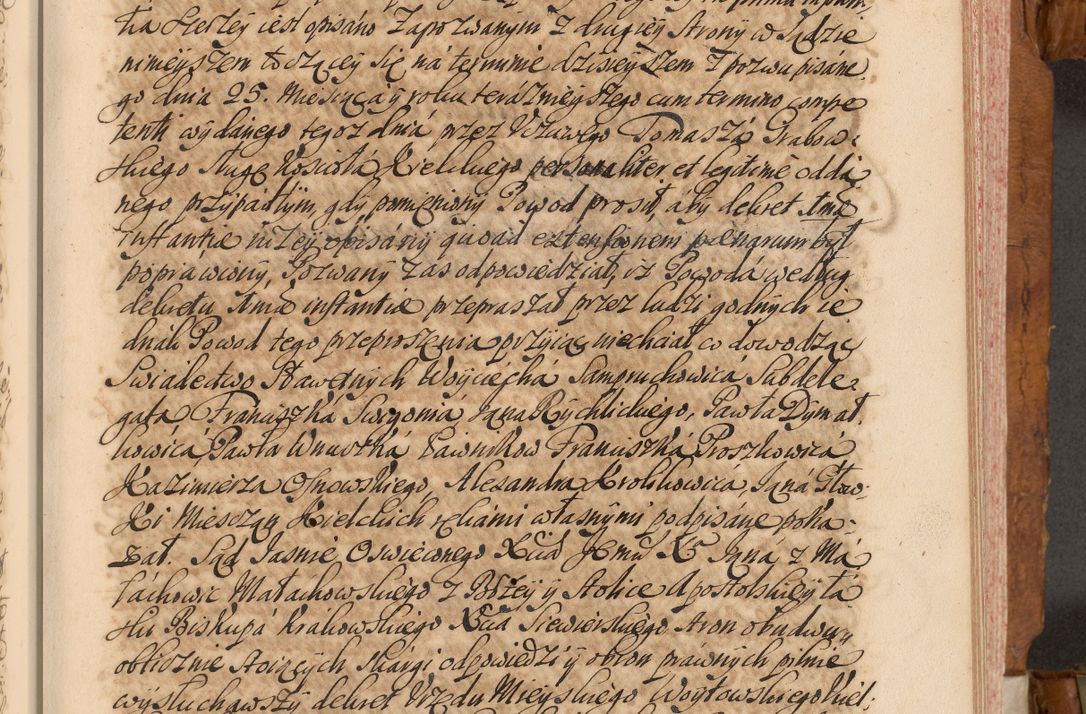 tia szerzey iest opisano Zapozwanym z drugiey Strony w Sądzie
ninieyszem toczącey się na terminie dzisieyszem z pozwu pisane
go dnia 25. Miesiąca y roku teraznieyszego cum termino compe
tenti wydanego tegoz dnia przez Uczciwego Tomasza Grabow:
skiego Sługę Koscioła Kielckiego personaliter et legitime odda
nego przypadłym, gdy pomieniony Powod prosił, aby dekret 1mæ
instantiæ nizey opisany quoad extensionem pœnarum był
poprawiony, Pozwany zas odpowiedział, iz Powoda według
dekretu 1mæ instantiæ przepraszał przez ludzi godnych ie
dnak Powod tego przeproszenia przyiąc niechciał co dowodząc
Swiadectwo Sławetnych Woyciecha Sampruchowica Subdele
gata, Franciszka Surgonia, Jana Rychlickiego, Pawła Dymał
kowica, Pawła Wnuczka Ławnikow Franciszka Proszkowica
Kazimierza Osnowskiego, Alexandra Krolikowica, Jana Gław
ki Miesczan Kielckich rękami własnymi podpisane poka=
zał. Sąd Jasnie Oswieconego Xcia Jmci X Jana z Ma
łachowic Małachowskiego z Bozey y Stolice Apostolskiey ła
ski Biskupa Krakowskiego Xcia Siewierskiego Stron obudwu
oblicznie stoiących skargi odpowiedzi y obron prawnych pilnie
wysłuchawszy dekret Urzędu Mieyskiego Woytowskiego Kiel: